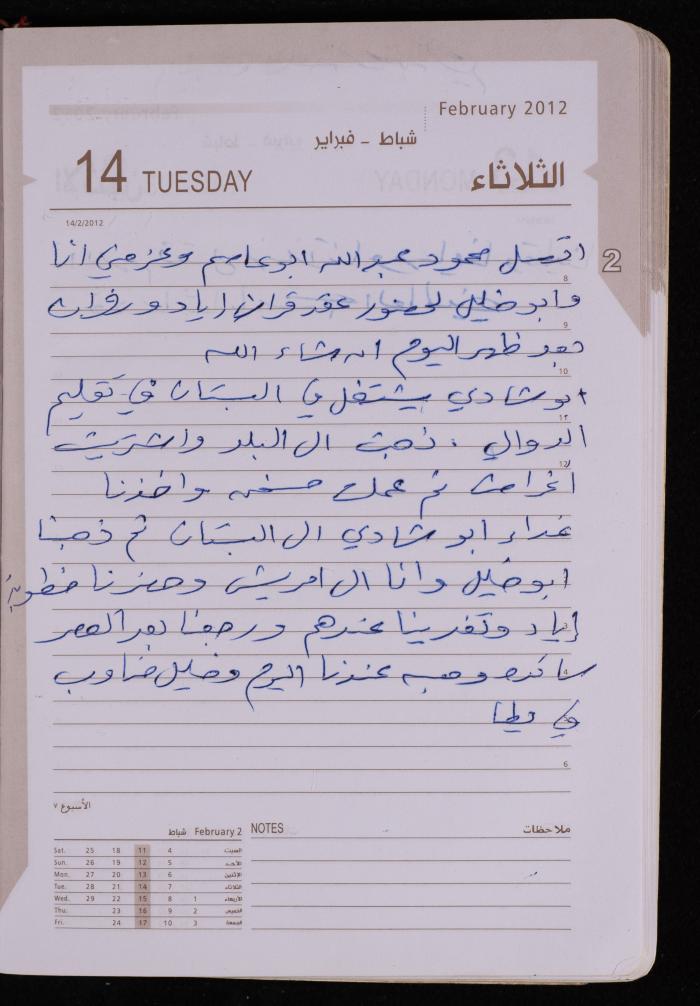 February 2012
شباط - فبراير
14 TUESDAY الثلاثاء
14/2/2012
اتصل محمود عبد الله ابو عاصم وعزمني انا
2
8
وابو خليل لحضور عقد قران اياد و
9
بعد ظهر اليوم ان شاء الله
10
ابو شادي يشتغل في البستان في تقليم
الدوالي . ذهبت ال البلد واشتريت
اغراض ثم عملت واخذنا
غداء ابو شادي ال البستان ثم ذهبنا
ابو خليل وانا ال امريش وحضرنا خطوبة
إياد وتغدينا عندهم ورجعنا بعد العصر
عندنا اليوم وخليل
في يطا
6
الأسبوع ٧
شباط February 2
Sat. 25 18 11 4 السبت
Sun. 26 19 12 5 الأحد
Mon. 27 20 13 6 الإثنين
Tue. 28 21 14 7 الثلاثاء
Wed. 29 22 15 8 1 الأربعاء
Thu. 23 16 9 2 الخميس
Fri. 24 17 10 3 الجمعة
NOTES ملاحظات